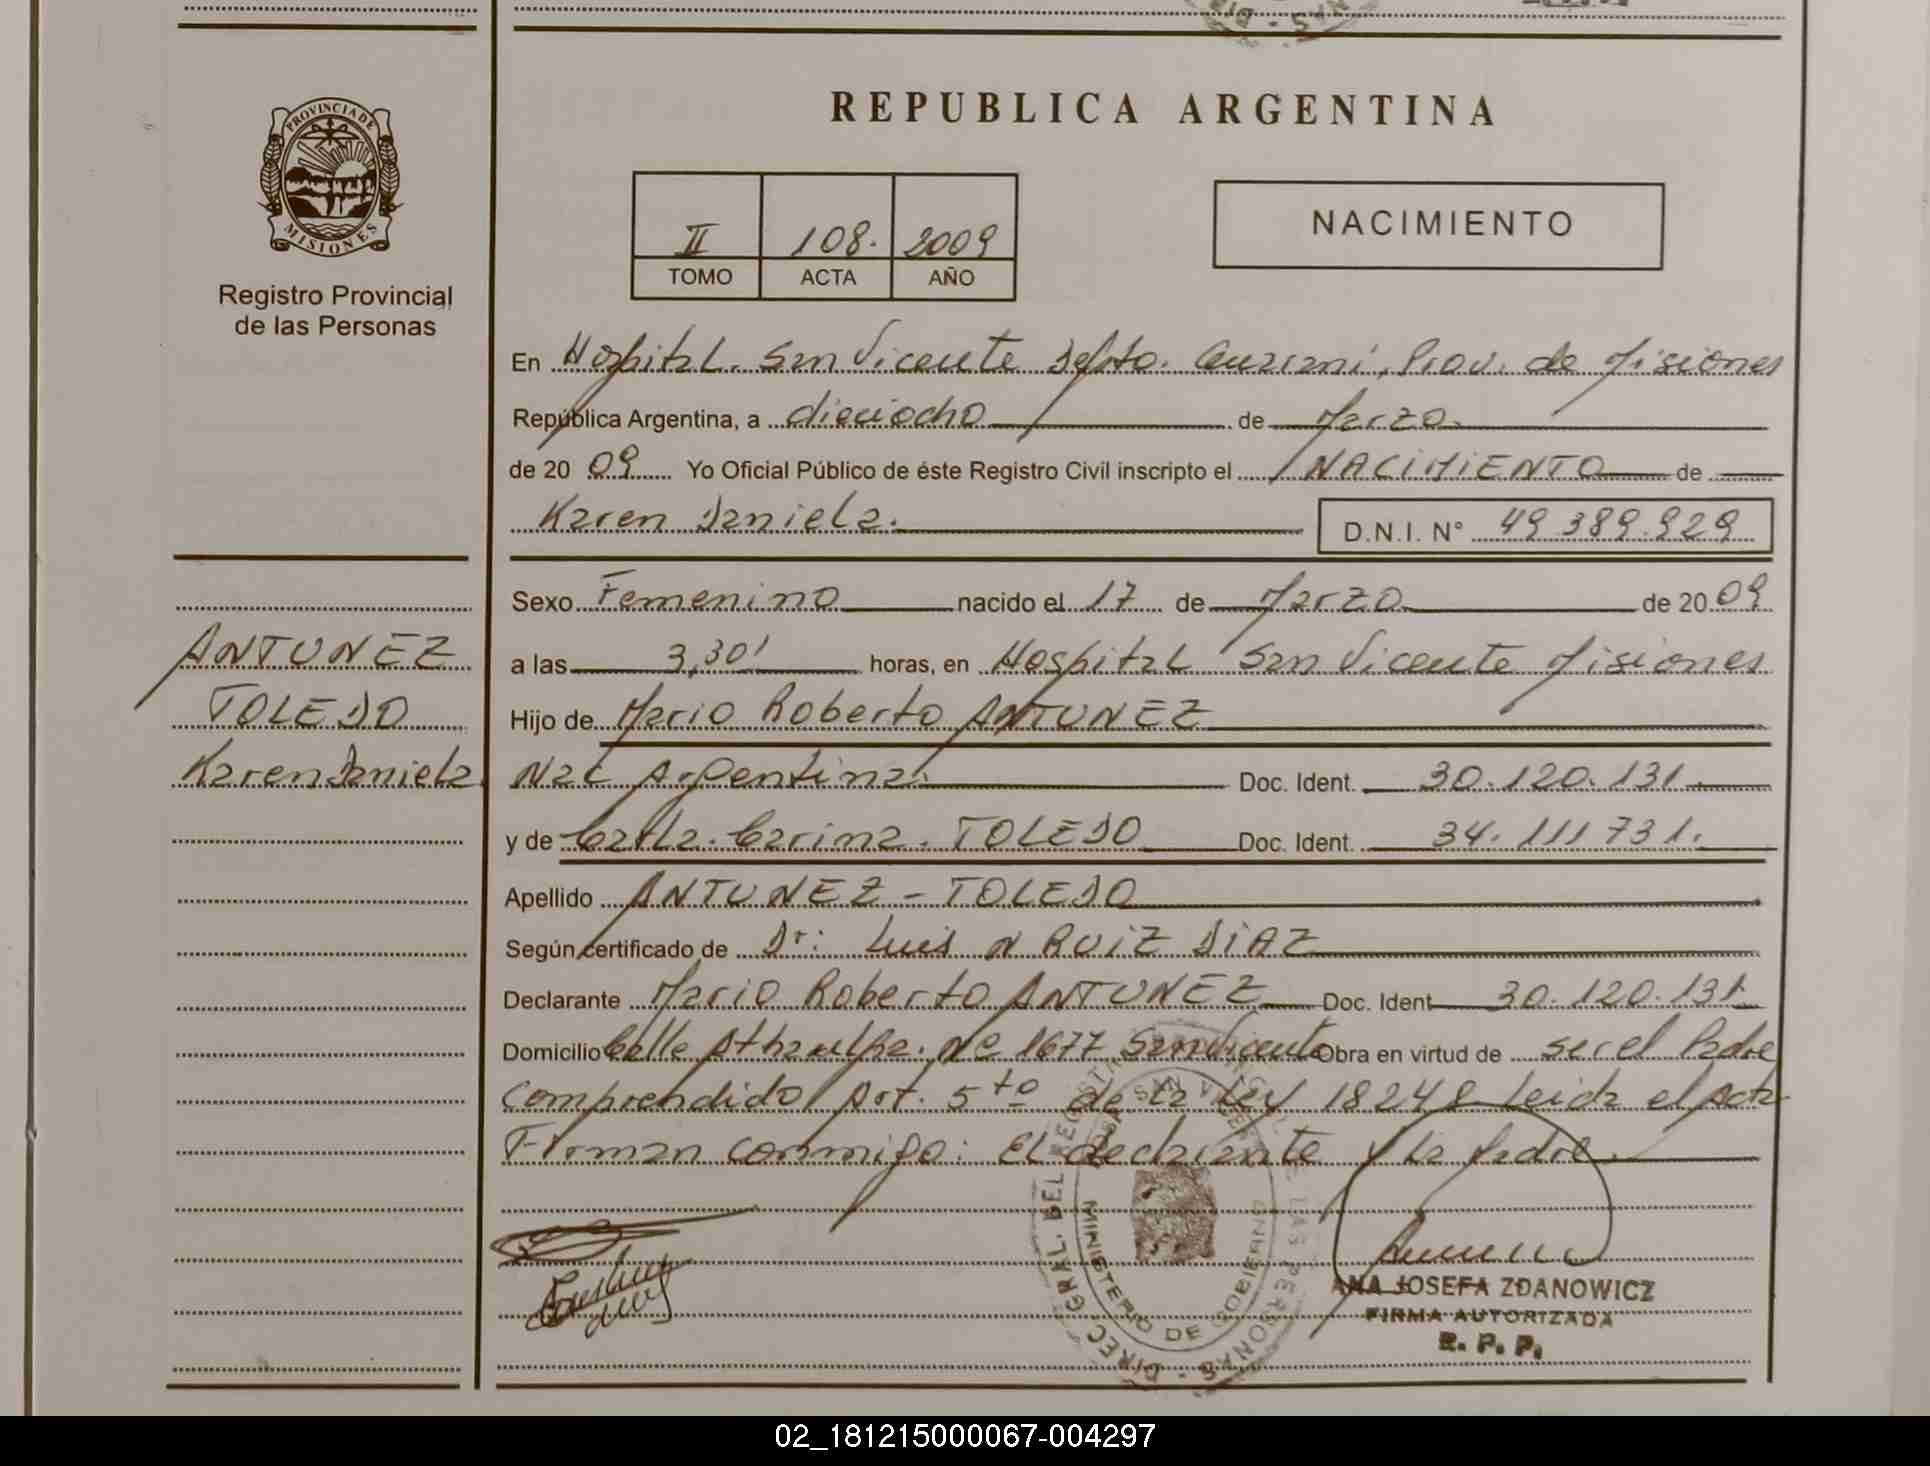 PROVINCIA DE
MISIONES
Registro Provincial
de las Personas
ANTUNEZ
TOLEDO
Karen Daniela.
REPUBLICA ARGENTINA
II 108. 2009
TOMO ACTA AÑO
NACIMIENTO
En Hospital. San Vicente Depto. Guarani, Prov. de Misiones
República Argentina, a dieciocho de Marzo.
de 20 09 Yo Oficial Público de éste Registro Civil inscripto el NACIMIENTO de
Karen Daniela. D.N.I. N° 49 389.929
Sexo Femenino nacido el 17 de Marzo de 20 09
a las 3,30' horas, en Hospital San Vicente Misiones
Hijo de Mario Roberto ANTUNEZ
Nac Argentina. Doc. Ident. 30.120.131.
y de Carla. Carina. TOLEDO Doc. Ident. 34.111 731.
Apellido ANTUNEZ - TOLEDO
Según certificado de Dr: Luis N RUIZ DIAZ
Declarante Mario Roberto ANTUNEZ Doc. Ident 30.120.131.
Domicilio Calle Athaulpa. Nº 1677 San Vicente Obra en virtud de ser el Padre
Comprendido Art. 5to de la Ley 18248 Leida el Acta
Firman conmigo: El declarante y la Madre.
DIREC. GRAL. DEL REGISTRO PROVINCIAL DE LAS PERSONAS
MINISTERIO DE GOBIERNO
SAN VICENTE
ANA JOSEFA ZDANOWICZ
FIRMA AUTORIZADA
R. P. P.
02_181215000067-004297